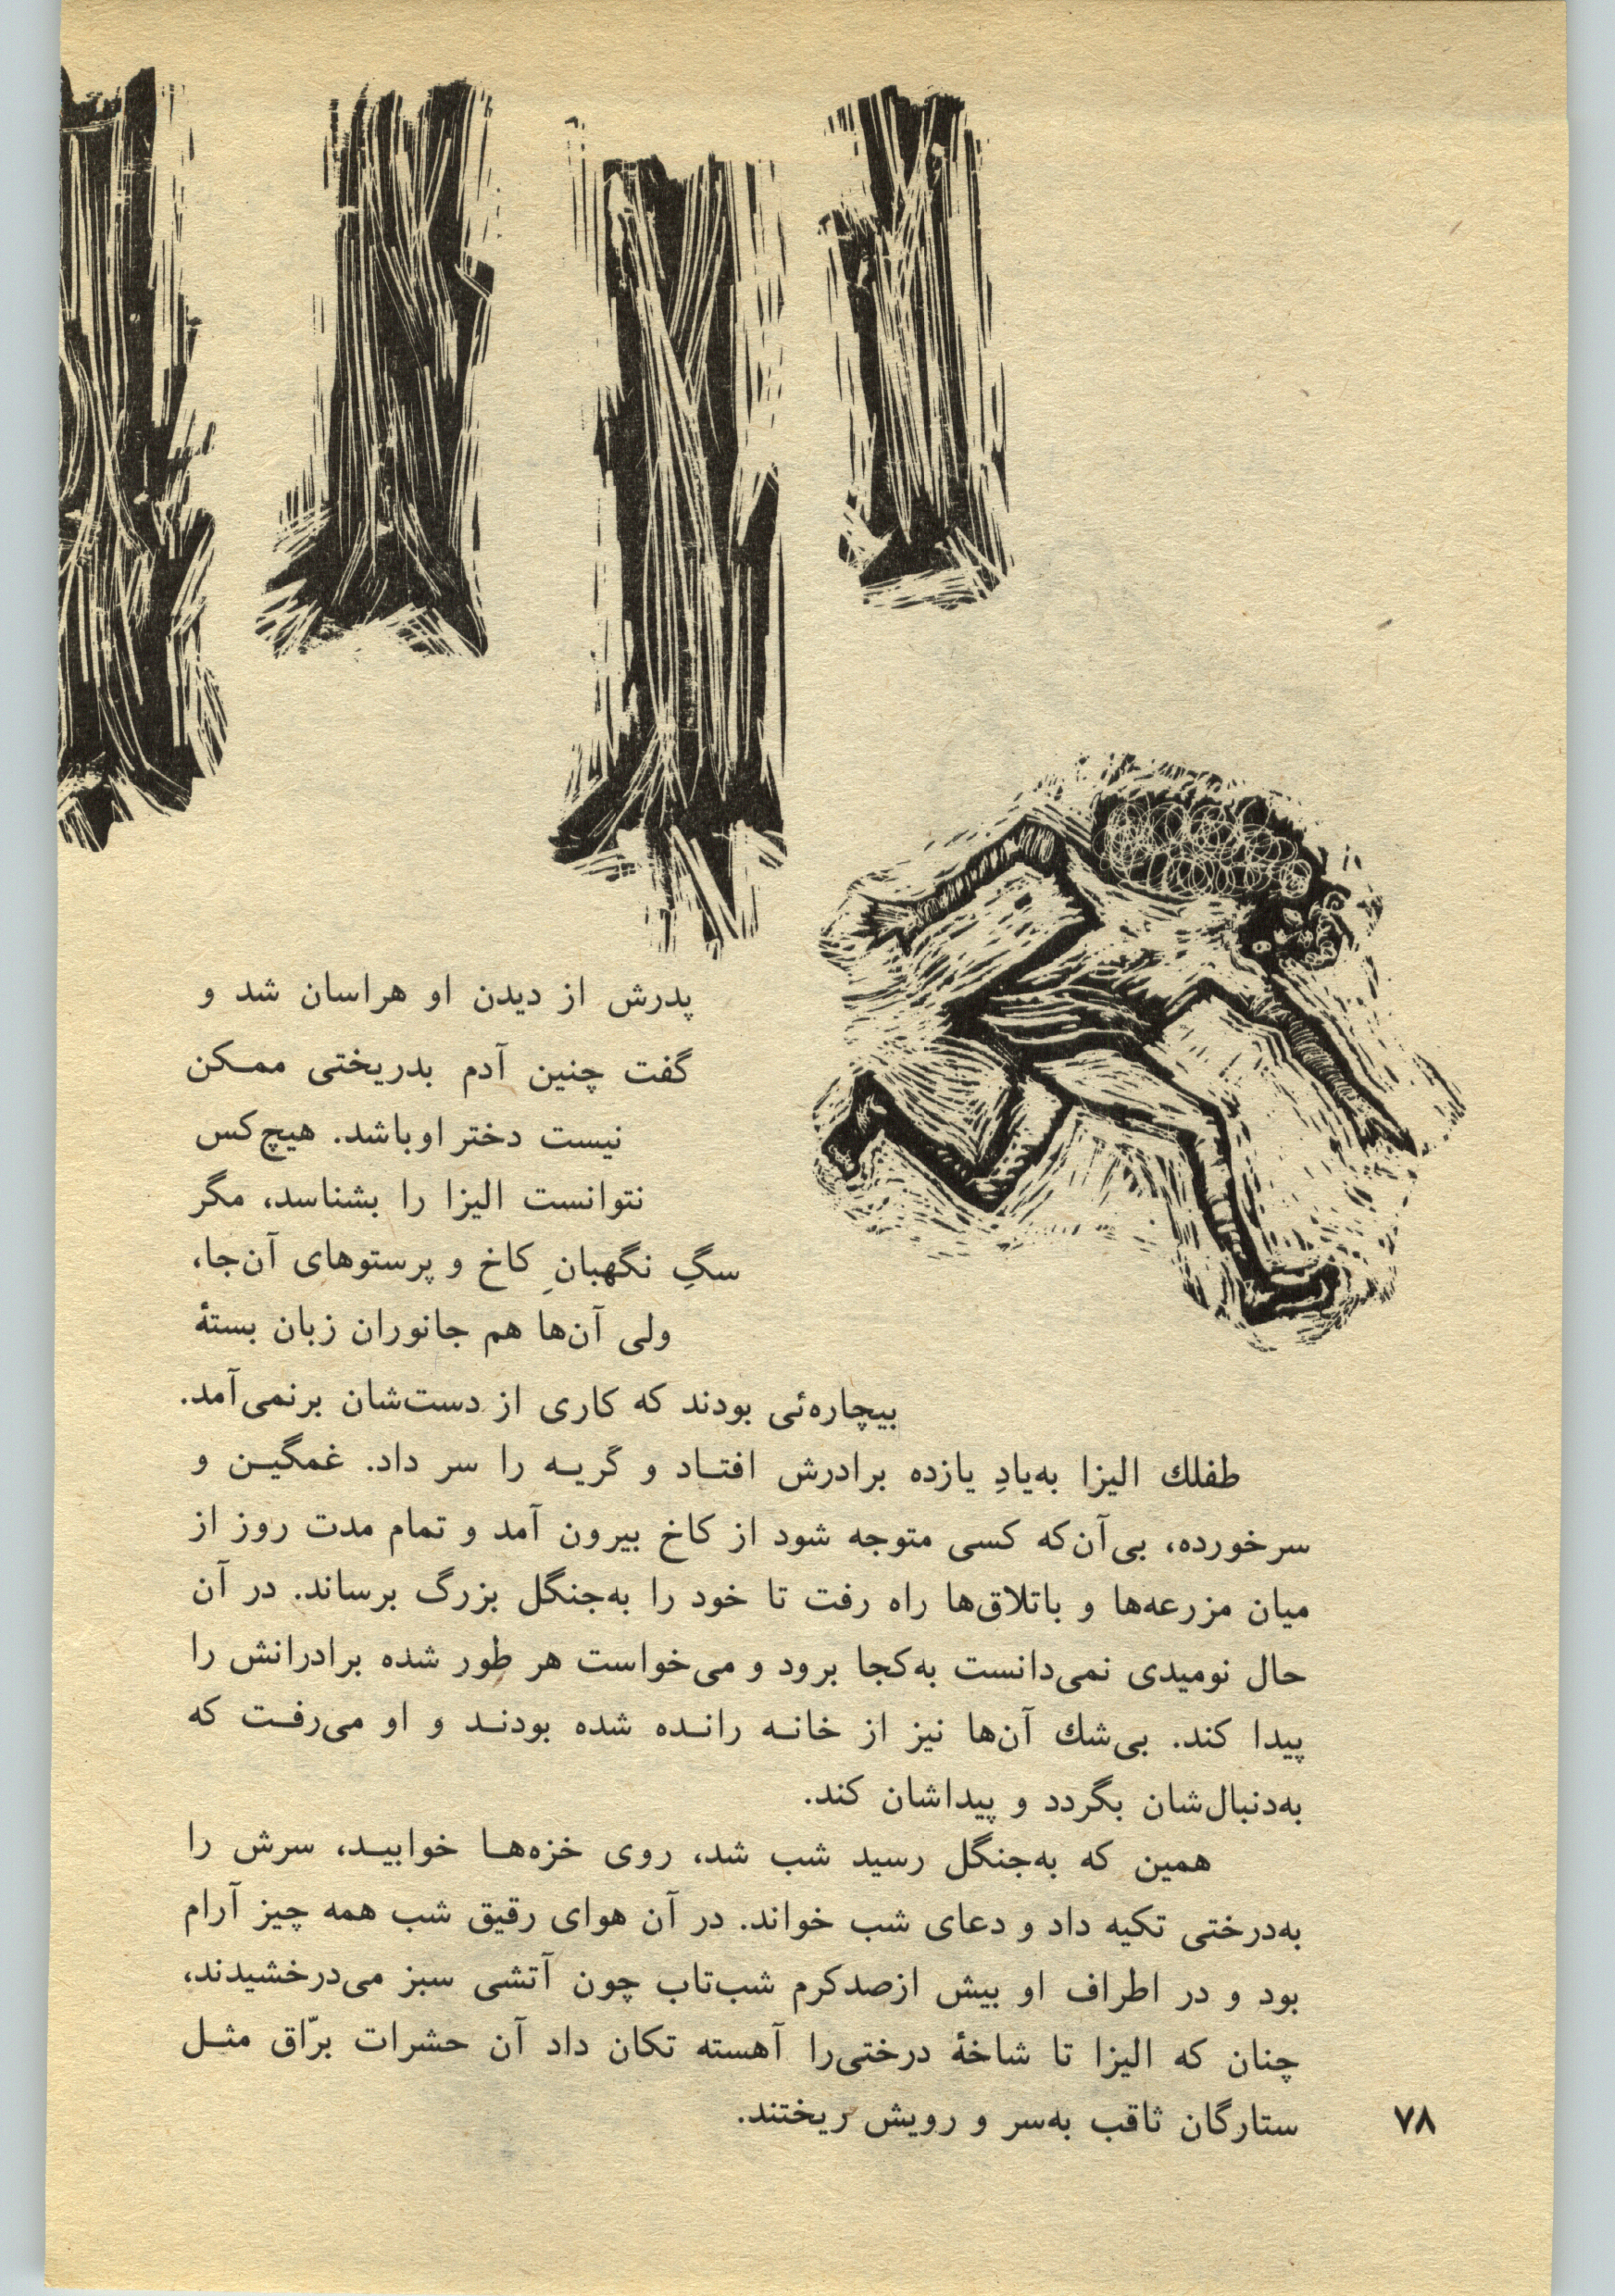 پدرش از دیدن او هراسان شد و
گفت چنین آدم بدریختی ممـکن
نیست دختر اوباشد. هیچ‌کس
نتوانست الیزا را بشناسد، مگر
سگِ نگهبانِ کاخ و پرستوهای آن‌جا،
ولی آن‌ها هم جانوران زبان بستهٔ
بیچاره‌ئی بودند که کاری از دست‌شان برنمی‌آمد.
طفلك الیزا به‌یادِ یازده برادرش افتـاد و گریـه را سر داد. غمگیـن و
سرخورده، بی‌آن‌که کسی متوجه شود از کاخ بیرون آمد و تمام مدت روز از
میان مزرعه‌ها و باتلاق‌ها راه رفت تا خود را به‌جنگل بزرگ برساند. در آن
حال نومیدی نمی‌دانست به‌کجا برود و می‌خواست هر طور شده برادرانش را
پیدا کند. بی‌شك آن‌ها نیز از خانـه رانـده شده بودنـد و او می‌رفـت که
به‌دنبال‌شان بگردد و پیداشان کند.
همین که به‌جنگل رسید شب شد، روی خزه‌هـا خوابیـد، سرش را
به‌درختی تکیه داد و دعای شب خواند. در آن هوای رقیق شب همه چیز آرام
بود و در اطراف او بیش ازصدکرم شب‌تاب چون آتشی سبز می‌درخشیدند،
چنان که الیزا تا شاخهٔ درختی‌را آهسته تکان داد آن حشرات برّاق مثـل
ستارگان ثاقب به‌سر و رویش ریختند.
۷۸